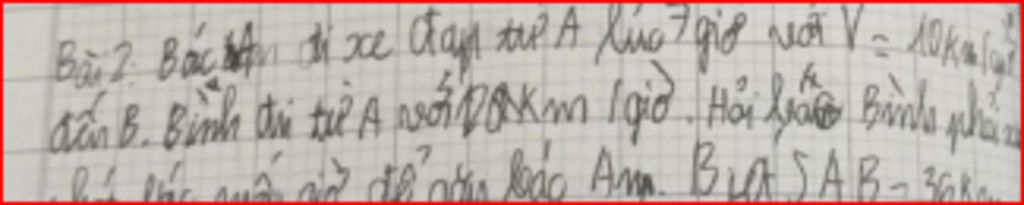 Bài 2. Bác An đi xe đạp từ A lúc 7 giờ với V = 10km/giờ
đến B. Bình đi từ A với 20Km/giờ. Hỏi Bình phải
lúc mấy giờ để gặp bác An. Biết SAB = 36km